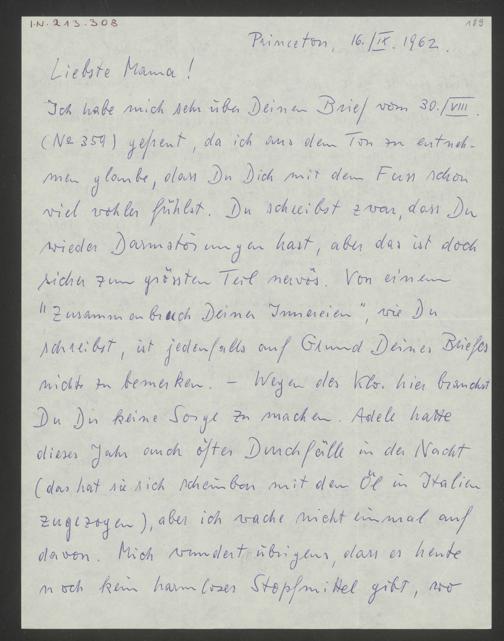 I.N. 213.308
189
Princeton, 16./IX. 1962.
Liebste Mama!
Ich habe mich sehr über Deinen Brief vom 30./VIII.
(No 359) gefreut, da ich aus dem Ton zu entneh-
men glaube, dass Du Dich mit dem Fuss schon
viel wohler fühlst. Du schreibst zwar, dass Du
wieder Darmstörungen hast, aber das ist doch
sicher zum grössten Teil nervös. Von einem
"Zusammenbruch Deiner Innereien", wie Du
schreibst, ist jedenfalls auf Grund Deines Briefes
nichts zu bemerken. – Wegen des Klo. hier brauchst
Du Dir keine Sorge zu machen. Adele hatte
dieses Jahr auch öfter Durchfälle in der Nacht
(das hat sie sich scheinbar mit dem Öl in Italien
zugezogen), aber ich wache nicht einmal auf
davon. Mich wundert übrigens, dass es heute
noch kein harmloses Stopfmittel gibt, wo